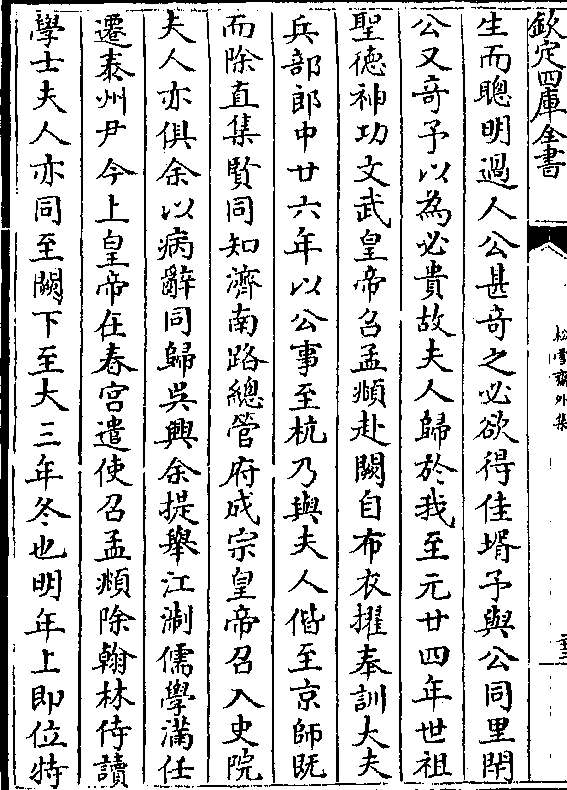 欽定四庫全書
松雪齋外集
生而聰明過人公甚奇之必欲得佳壻予與公同里閈
公又竒予以為必貴故夫人歸於我至元廿四年世祖
聖德神功文武皇帝召孟頫赴闕自布衣擢奉訓大夫
兵部郎中廿六年以公事至杭乃與夫人偕至京師既
而除直集賢同知濟南路總管府成宗皇帝召入史院
夫人亦俱余以病辭同歸吳興余提舉江淛儒學滿任
遷泰州尹今上皇帝在春宮遣使召孟頫除翰林侍讀
學士夫人亦同至闕下至大三年冬也明年上即位特